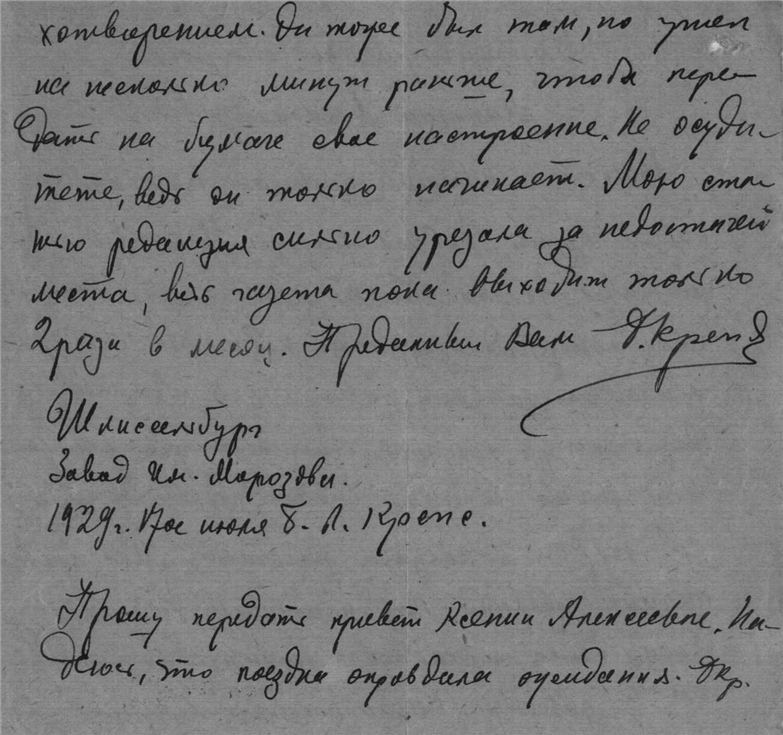 хотворением. Он тоже был там, но ушел
на несколько минут раньше, чтобы пере-
дать на бумаге свое настроение. Не осуди-
тете, ведь он только начинает. Мою ста-
тью редакция сильно урезала за недостачей
места, ведь газета пока выходит только
2 раза в месяц. Преданный Вам Д. Крепс
Шлиссельбург
Завод им. Морозова.
1929 г. 17ое июля Г. Л. Крепс.
Прошу передать привет Ксении Алексеевне. На-
деюсь, что поездка оправдала ожидания. ДКр.